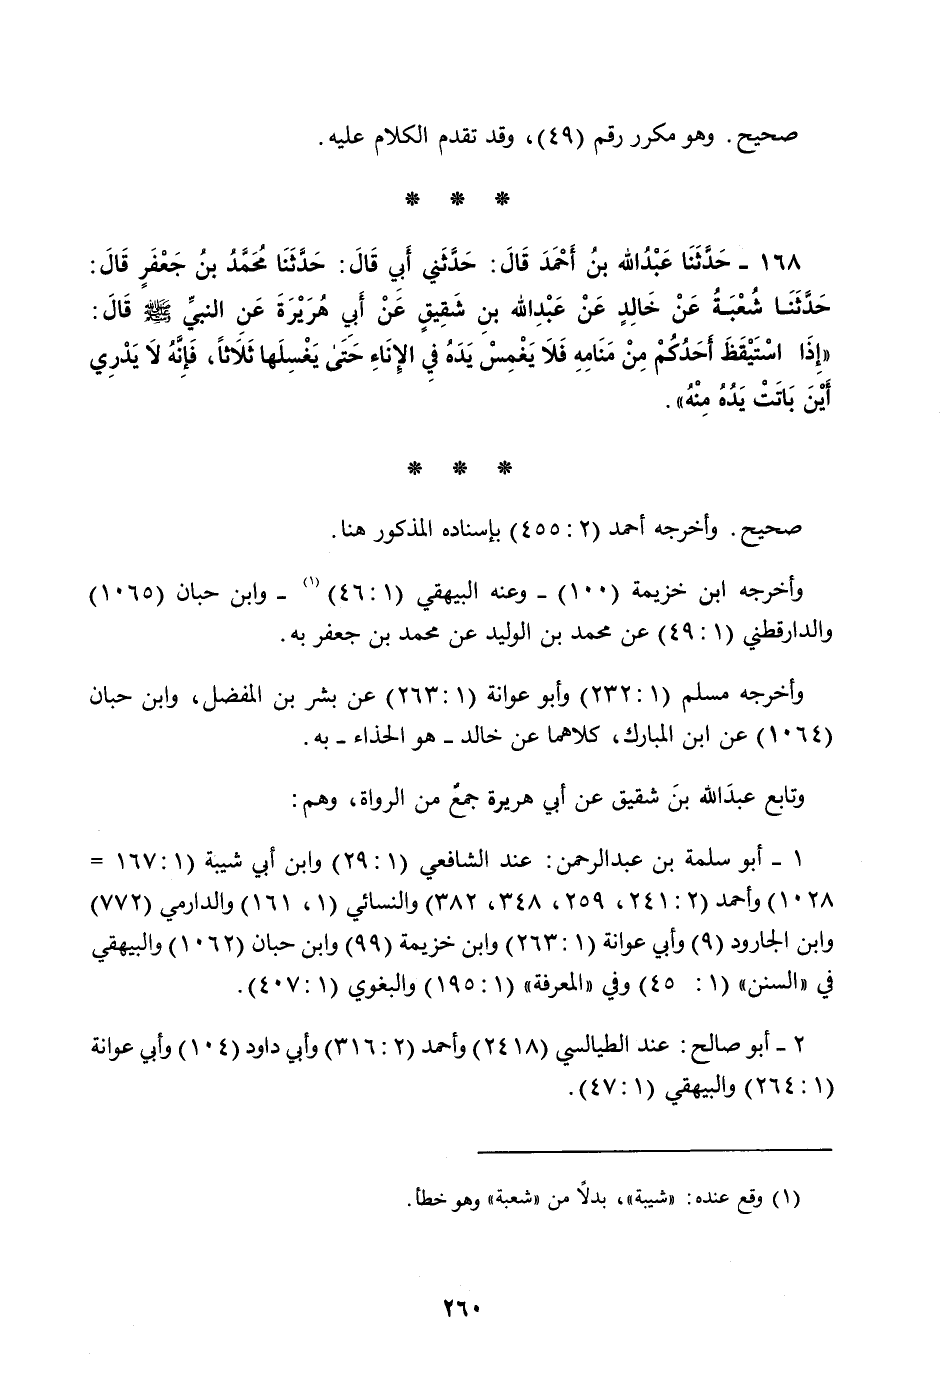 صحيح. وهو مكرر رقم (٤٩)، وقد تقدم الكلام عليه.
* * *
١٦٨ ـ حَدَّثَنَا عَبْدُالله بنُ أَحْمَدَ قَالَ: حَدَّثَني أَبي قَالَ: حَدَّثَنَا مُحَمَّدُ بنُ جَعْفَرٍ قَالَ:
حَدَّثَنَا شُعْبَةُ عَنْ خَالِدٍ عَنْ عَبْدِالله بنِ شَقِيقٍ عَنْ أَبي هُرَيْرَةَ عَنِ النبيِّ ﷺ قَالَ:
«إِذَا اسْتَيْقَظَ أَحَدُكُمْ مِنْ مَنَامِهِ فَلَا يَغْمِسْ يَدَهُ في الإِنَاءِ حَتَى يَغْسِلَها ثَلَاثاً، فَإِنَّهُ لَا يَدْرِي
أَيْنَ بَاتَتْ يَدُهُ مِنْهُ».
* * *
صحيح. وأخرجه أحمد (٢: ٤٥٥) بإسناده المذكور هنا.
وأخرجه ابن خزيمة (١٠٠) ـ وعنه البيهقي (١: ٤٦)(١) ـ وابن حبان (١٠٦٥)
والدارقطني (١: ٤٩) عن محمد بن الوليد عن محمد بن جعفر به.
وأخرجه مسلم (١: ٢٣٢) وأبو عوانة (١: ٢٦٣) عن بشر بن المفضل، وابن حبان
(١٠٦٤) عن ابن المبارك، كلاهما عن خالد ـ هو الحذاء ـ به.
وتابع عبدَالله بنَ شقيق عن أبي هريرة جمعٌ من الرواة، وهم:
١ ـ أبو سلمة بن عبدالرحمن: عند الشافعي (١: ٢٩) وابن أبي شيبة (١: ١٦٧ =
١٠٢٨) وأحمد (٢: ٢٤١، ٢٥٩، ٣٤٨، ٣٨٢) والنسائي (١، ١٦١) والدارمي (٧٧٢)
وابن الجارود (٩) وأبي عوانة (١: ٢٦٣) وابن خزيمة (٩٩) وابن حبان (١٠٦٢) والبيهقي
في «السنن» (١: ٤٥) وفي «المعرفة» (١: ١٩٥) والبغوي (١: ٤٠٧).
٢ ـ أبو صالح: عند الطيالسي (٢٤١٨) وأحمد (٢: ٣١٦) وأبي داود (١٠٤) وأبي عوانة
(١: ٢٦٤) والبيهقي (١: ٤٧).
(١) وقع عنده: «شيبة»، بدلًا من «شعبة» وهو خطأ.
٢٦٠